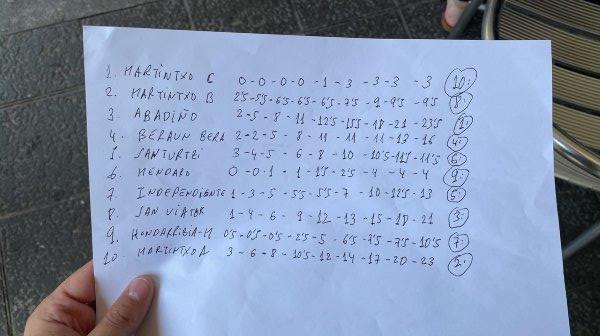 1. MARTINTXO C 0-0-0-0-1-3-3-3-3 10.
2. MARTINTXO B 2'5-5'5-6'5-6'5-6'5-7'5-9-9'5-9'5 8.
3. ABADIÑO 2-5-8-11-12'5-15'5-18-21-23'5 1.
4. BERAUN BERA 2-2-5-8-11-11-11-13-16 4.
5. SANTURTZI 3-4-5-6-8-10-10'5-11'5-11'5 6.
6. MENDARO 0-0-1-1-1'5-2'5-4-4-4 9.
7. INDEPENDIENTE 1-3-5-5'5-5'5-7-10-12'5-13 5.
8. SAN VIATOR 1-4-6-9-12-13-15-18-21 3.
9. HONDARRIBIA-M 0'5-0'5-0'5-2'5-5-6'5-7'5-7'5-10'5 7.
10. MARTINTXO A 3-6-8-10'5-12-14-17-20-23 2.